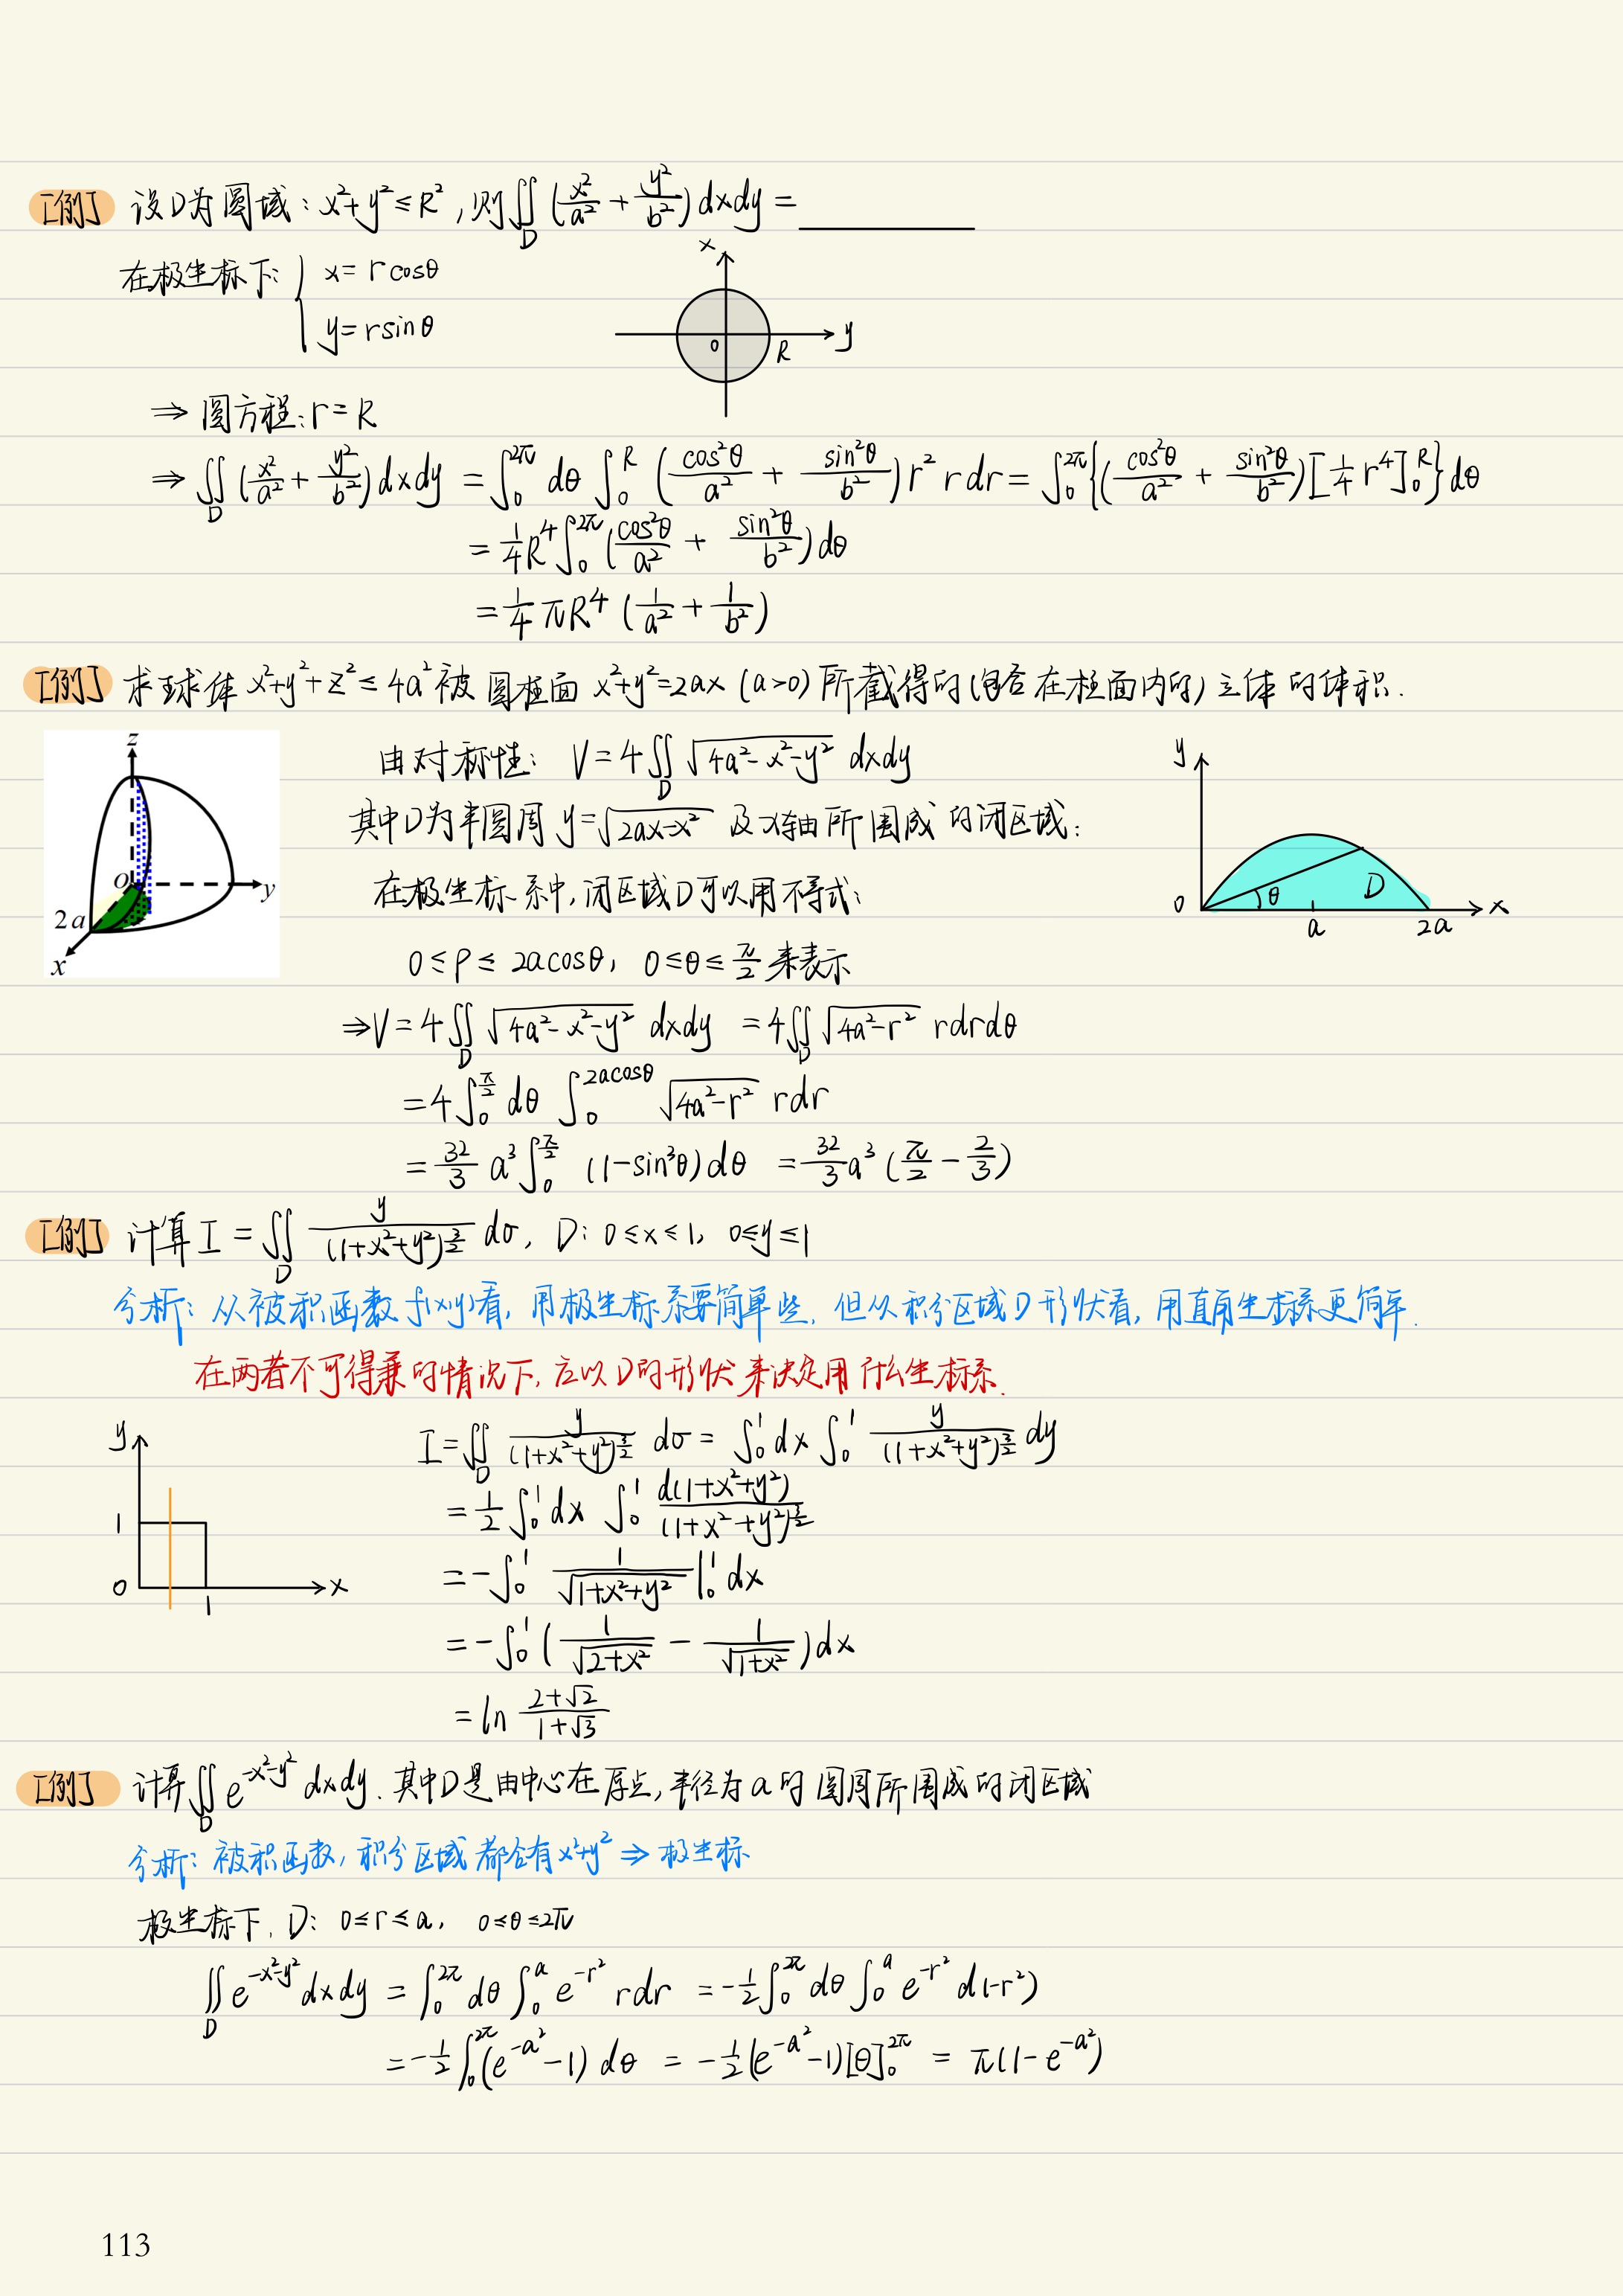 [例] 设D为圆域：x²+y²≤R²，则∬_D (x²/a² + y²/b²)dxdy = ______
在极坐标下：{ x=rcosθ
y=rsinθ
x
y
0
R
⇒ 圆方程：r=R
⇒ ∬_D (x²/a² + y²/b²)dxdy = ∫_0^{2π} dθ ∫_0^R (cos²θ/a² + sin²θ/b²)r² rdr = ∫_0^{2π}{(cos²θ/a² + sin²θ/b²)[1/4 r⁴]_0^R}dθ
= 1/4 R⁴∫_0^{2π}(cos²θ/a² + sin²θ/b²)dθ
= 1/4 πR⁴ (1/a² + 1/b²)
[例] 求球体 x²+y²+z²≤4a² 被圆柱面 x²+y²=2ax (a>0) 所截得的(包含在柱面内的) 立体的体积.
z
o
y
2a
x
由对称性： V=4∬_D √(4a²-x²-y²) dxdy
其中D为半圆周 y=√(2ax-x²) 及x轴所围成的闭区域：
在极坐标系中，闭区域D可以用不等式：
0≤ρ≤2acosθ， 0≤θ≤π/2 来表示
y
0
θ
D
a
2a
x
⇒V=4∬_D √(4a²-x²-y²) dxdy =4∬_D √(4a²-r²) rdrdθ
=4∫_0^{π/2} dθ ∫_0^{2acosθ} √(4a²-r²) rdr
= 32/3 a³∫_0^{π/2} (1-sin³θ)dθ = 32/3 a³(π/2 - 2/3)
[例] 计算 I=∬_D y/(1+x²+y²)^{3/2} dσ， D：0≤x≤1， 0≤y≤1
分析：从被积函数f(x,y)看，用极坐标系要简单些，但从积分区域D形状看，用直角坐标系更简单.
在两者不可得兼的情况下，应以D的形状来决定用什么坐标系.
y
1
0
1
x
I=∬_D y/(1+x²+y²)^{3/2} dσ = ∫_0^1 dx ∫_0^1 y/(1+x²+y²)^{3/2} dy
= 1/2 ∫_0^1 dx ∫_0^1 d(1+x²+y²)/(1+x²+y²)^{3/2}
= -∫_0^1 1/√(1+x²+y²) |_0^1 dx
= -∫_0^1 (1/√(2+x²) - 1/√(1+x²))dx
= ln (2+√2)/(1+√3)
[例] 计算∬_D e^{-x²-y²} dxdy. 其中D是由中心在原点，半径为a的圆周所围成的闭区域
分析：被积函数，积分区域都含有x²+y² ⇒ 极坐标
极坐标下，D：0≤r≤a， 0≤θ≤2π
∬_D e^{-x²-y²}dxdy = ∫_0^{2π} dθ ∫_0^a e^{-r²} rdr = -1/2∫_0^{2π} dθ ∫_0^a e^{-r²} d(-r²)
= -1/2 ∫_0^{2π}(e^{-a²}-1) dθ = -1/2(e^{-a²}-1)[θ]_0^{2π} = π(1-e^{-a²})
113